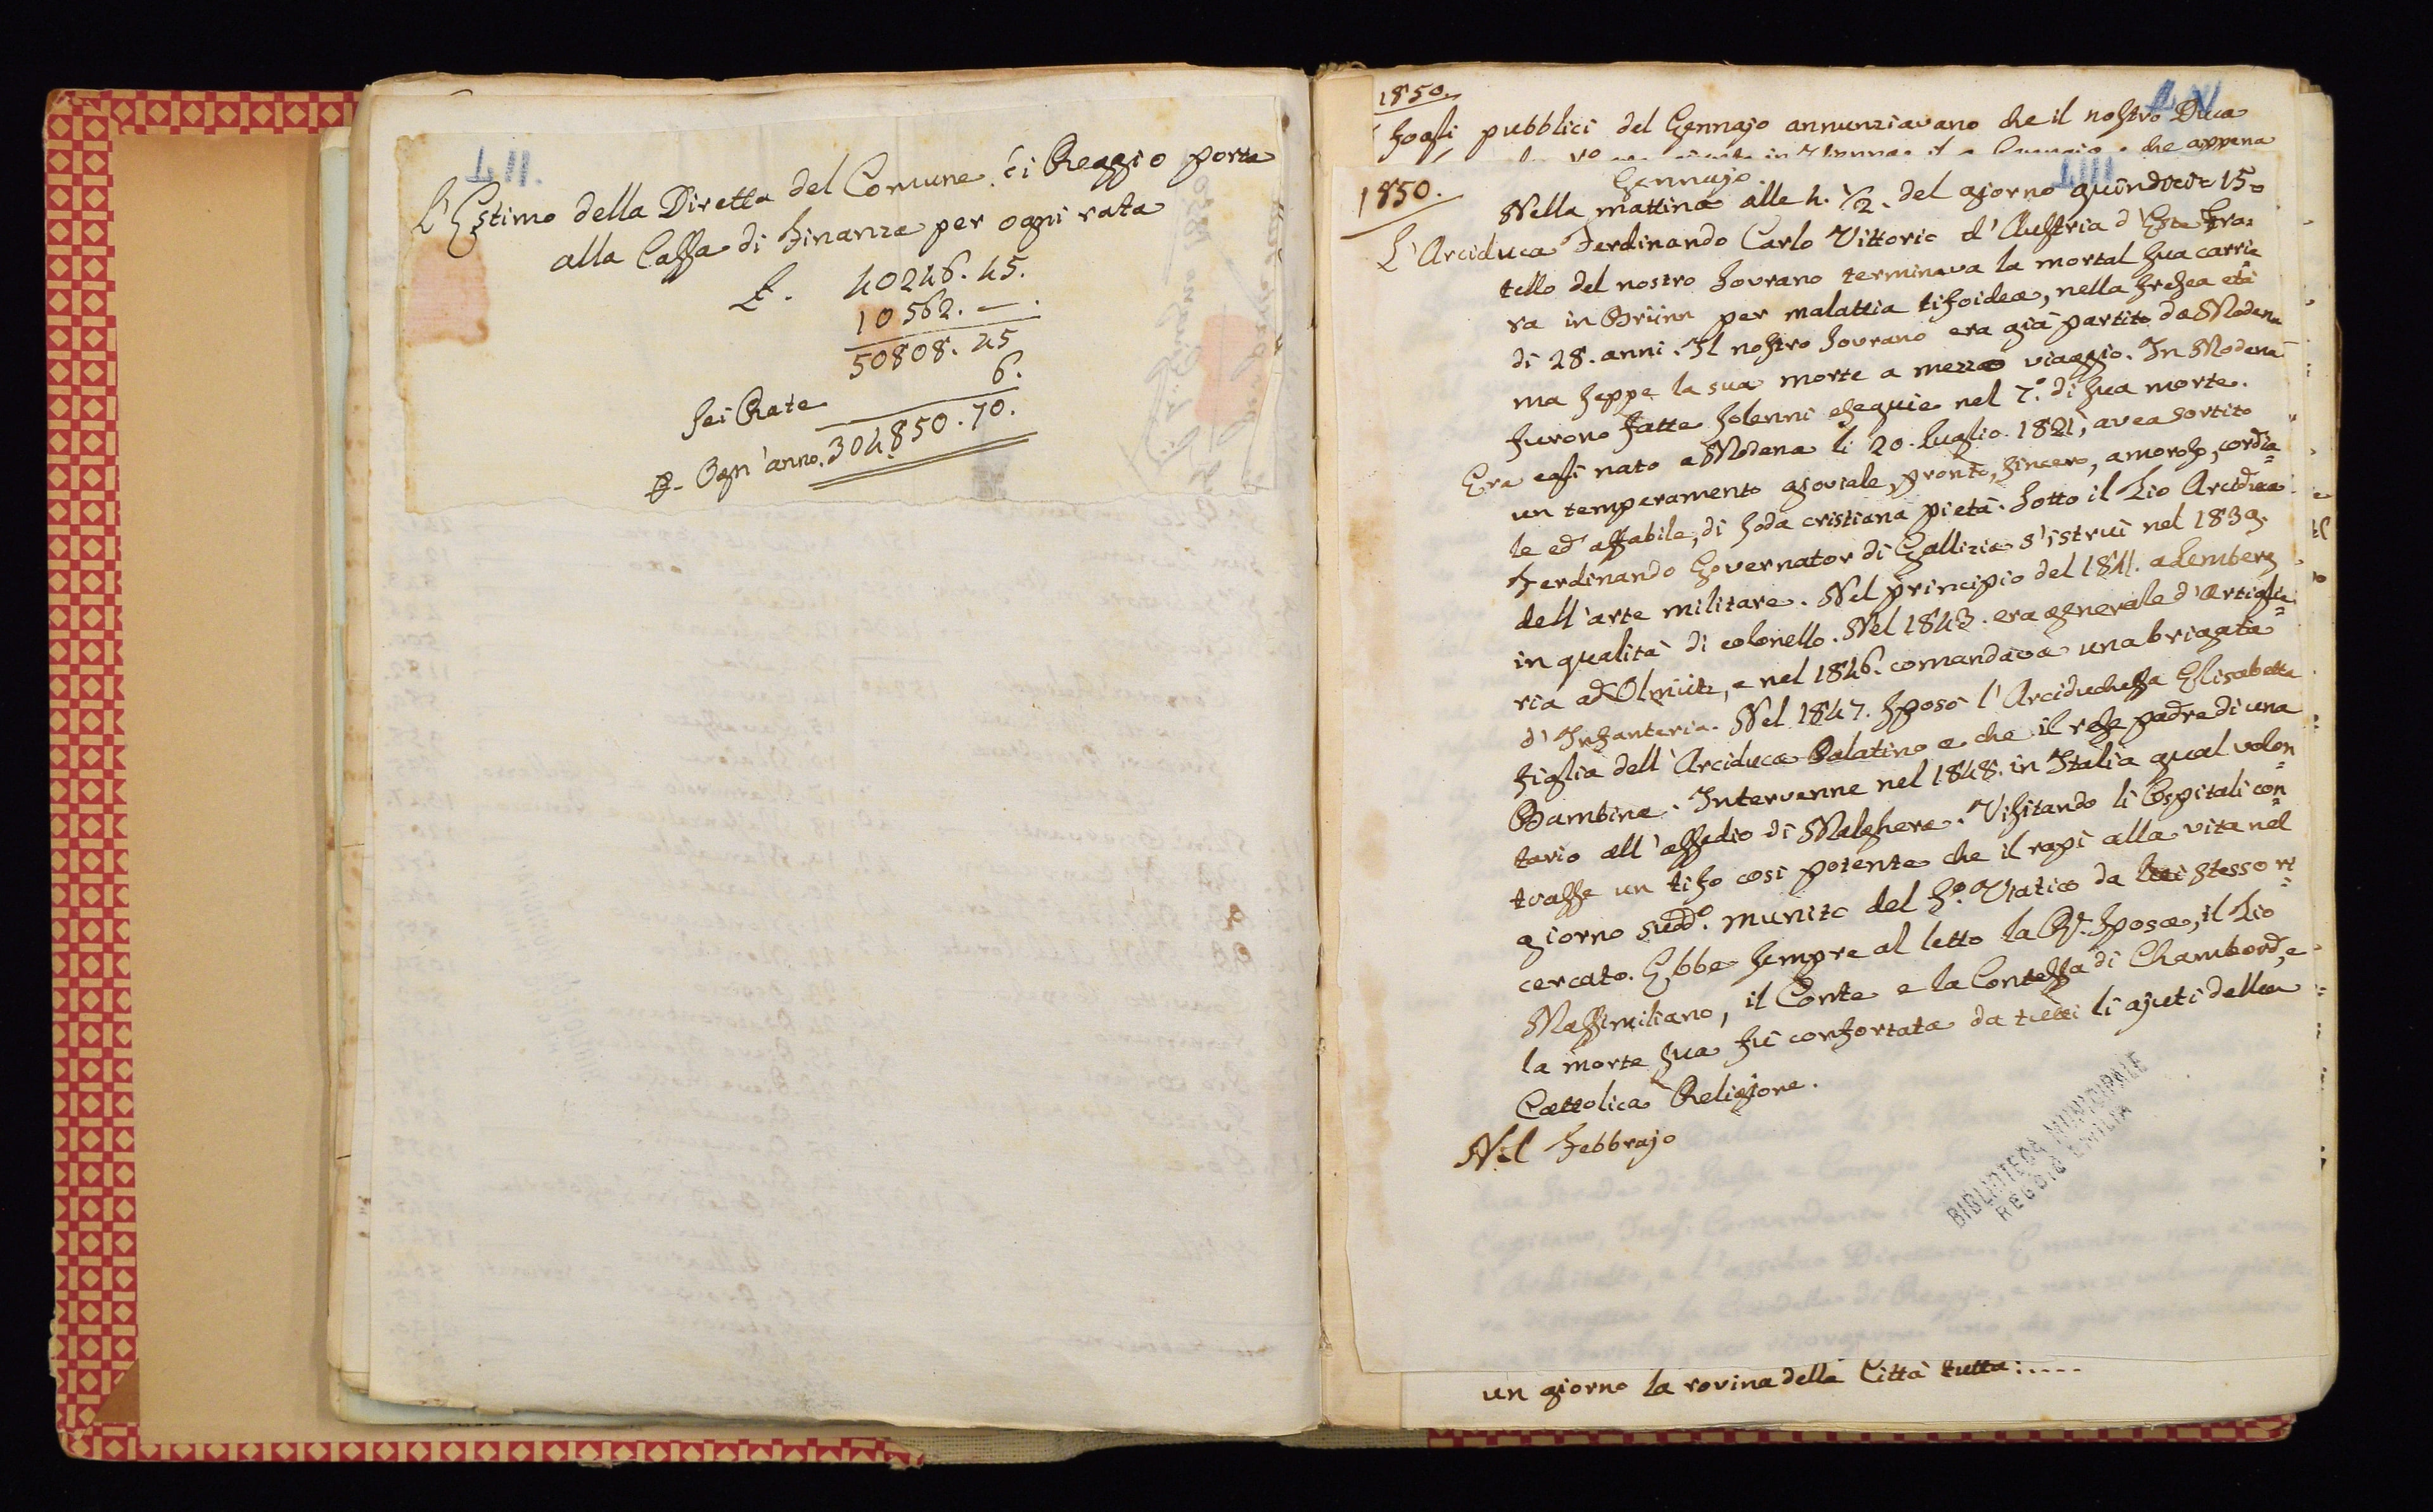 LII.
L'Estimo della Diretta del Comune di Reggio porta
alla Cassa di Finanza per ogni rata
£. 40246. 45.
10562. —.
50808. 45
Sei Rate 6.
Ogn'anno. 304850. 70.
1850.
LIV
fogli pubblici del Gennajo annunziavano che il nostro Duca
che appena
LIII
1850.
Gennajo
Nella mattina alle h. 1/2. del giorno quindici = 15 =
L'Arciduca Ferdinando Carlo Vittorio d'Austria d'Este Fra=
tello del nostro Sovrano terminava la mortal sua carrie
ra in Brünn per malattia tifoidea, nella fresca età
di 28. anni. Il nostro Sovrano era già partito da Modena
ma seppe la sua morte a mezzo viaggio. In Modena
furono fatte solenni esequie nel 7.º di sua morte.
Era egli nato a Modena li 20. luglio. 1821, avea sortito
un temperamento gioviale, pronto, sincero, amoroso, cordia=
le ed affabile, di soda cristiana pietà. Sotto il Zio Arciduca
Ferdinando Governator di Gallizia s'istruì nel 1839.
dell'arte militare. Nel principio del 1841. a Lemberg
in qualità di colonello. Nel 1843. era generale d'Artiglie=
ria ad Olmütz, e nel 1846. comandava una brigata
d'Infanteria. Nel 1847. sposò l'Arciduchessa Elisabetta
figlia dell'Arciduca Palatino e che il rese padre di una
Bambina. Intervenne nel 1848. in Italia qual volon=
tario all'assedio di Malghera. Visitando li Ospitali con=
trasse un tifo così potente che il rapì alla vita nel
giorno sudd.º munito del S.º Viatico da lui stesso ri=
cercato. Ebbe sempre al letto la R. Sposa, il Zio
Massimiliano, il Conte e la Contessa di Chambord, e
la morte sua fu confortata da tutti li ajuti della
Cattolica Religione.
Nel Febbrajo
BIBLIOTECA MUNICIPALE
REGGIO EMILIA
un giorno la rovina della Città tutta: . . . .